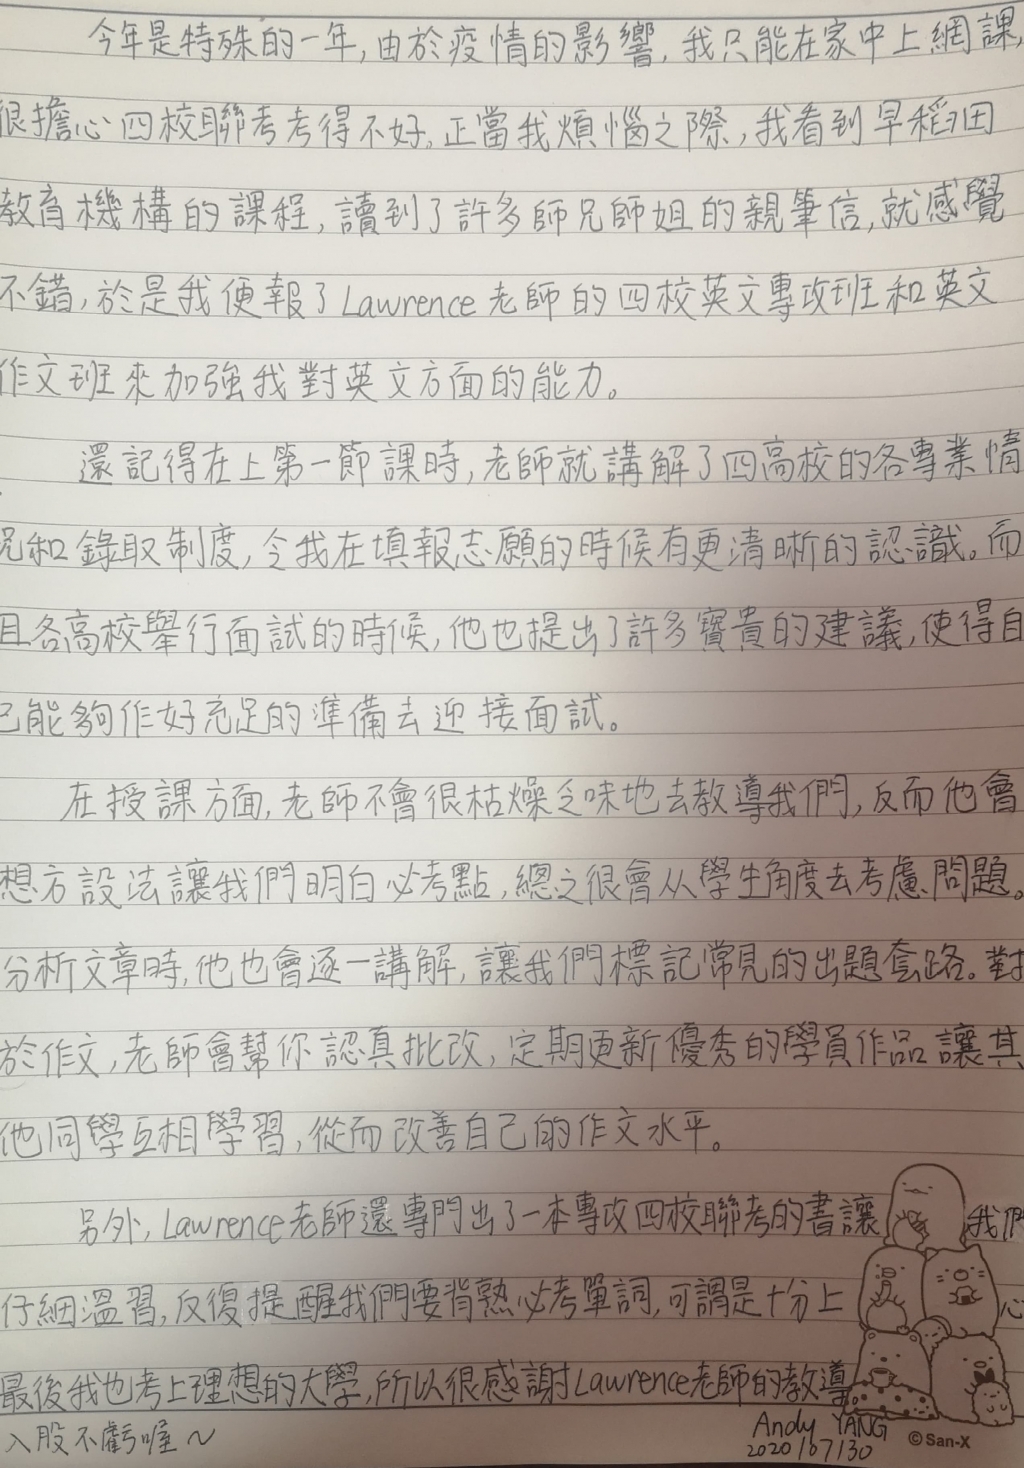 今年是特殊的一年,由於疫情的影響,我只能在家中上網課,
很擔心四校聯考考得不好。正當我煩惱之際,我看到早稻田
教育機構的課程,讀到了許多師兄師姐的親筆信,就感覺
不錯,於是我便報了Lawrence老師的四校英文專攻班和英文
作文班來加強我對英文方面的能力。
還記得在上第一節課時,老師就講解了四高校的各專業情
況和錄取制度,令我在填報志願的時候有更清晰的認識。而
且各高校舉行面試的時候,他也提出了許多寶貴的建議,使得自
己能夠作好充足的準備去迎接面試。
在授課方面,老師不會很枯燥乏味地去教導我們,反而他會
想方設法讓我們明白必考點,總之很會从學生角度去考慮問題。
分析文章時,他也會逐一講解,讓我們標記常見的出題套路。對
於作文,老師會幫你認真批改,定期更新優秀的學員作品讓其
他同學互相學習,從而改善自己的作文水平。
另外,Lawrence老師還專門出了一本專攻四校聯考的書讓我們
仔細溫習,反復提醒我們要背熟必考單詞,可謂是十分上心
最後我也考上理想的大學,所以很感謝Lawrence老師的教導。
入股不虧喔~
Andy YANG
2020/07/30
©San-X